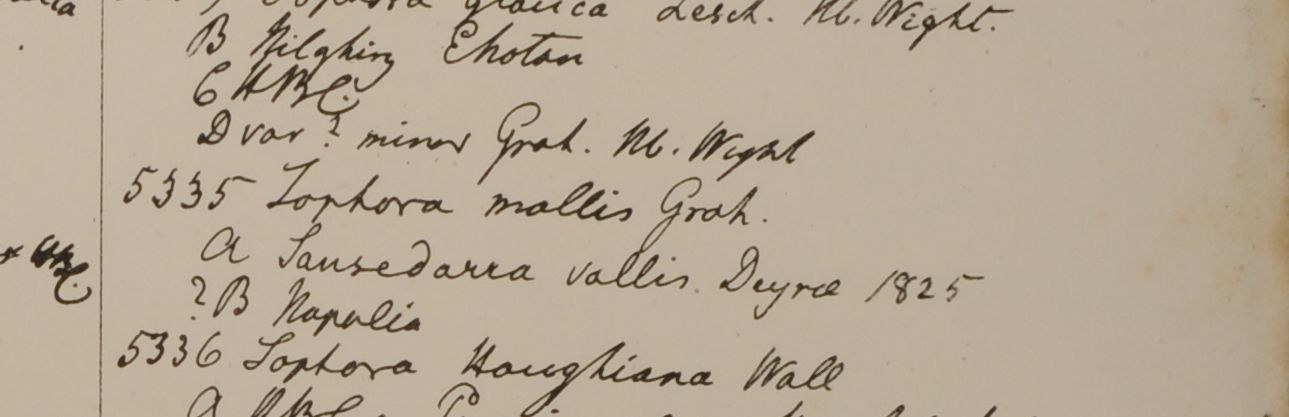 Sophora glauca Lesch. Hb. Wight.
B Nilghiry Ehotan
C HBC.
D var? minor Grah. Hb. Wight
5335 Sophora mollis Grah.
A Sansedarra vallis Deyræ 1825
? B Napalia
HBC.
5336 Sophora Houghiana Wall
A HBC